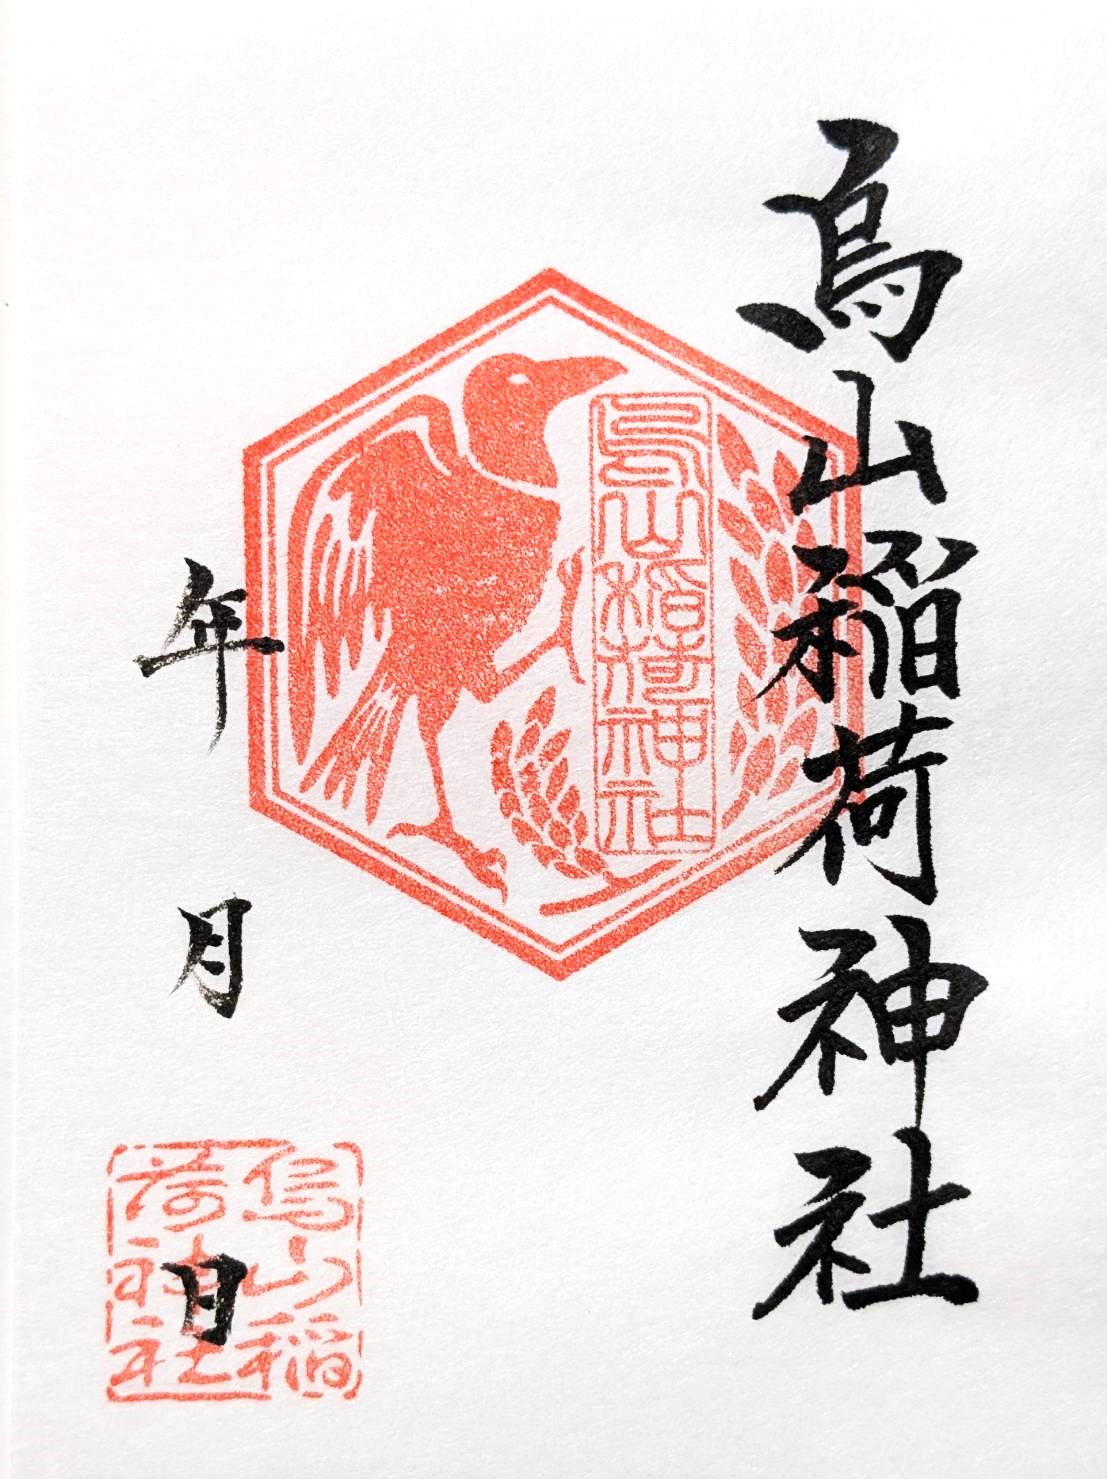 烏山稲荷神社
烏山稲荷神社
年 月 日
烏山稲
荷神社